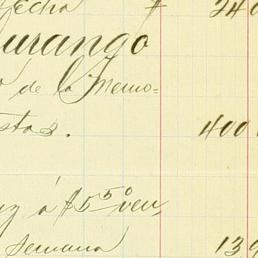 fecha $ 240
Durango
de la Memo-
stas. 400
á $5.50 ven,
semana 139